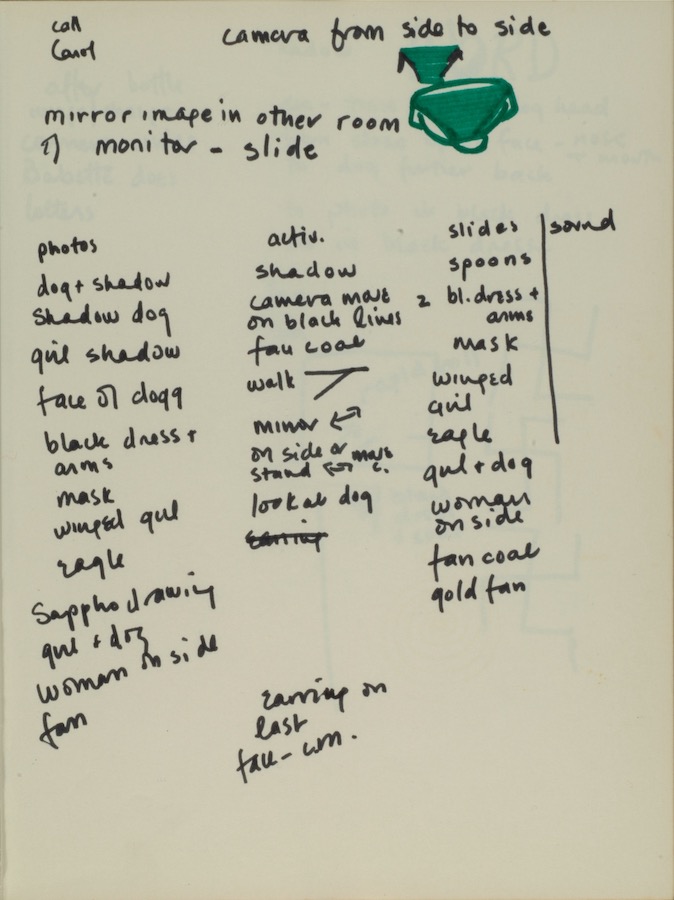 call
Carol
camera from side to side
mirror image in other room
of monitor - slide
photos
dog + shadow
shadow dog
girl shadow
face of dogg
black dress +
arms
mask
winged girl
eagle
Sappho drawing
girl + dog
woman on side
fan
activ.
shadow
camera move
on black lines
fan coat
walk
mirror ↔
on side or move
stand ↔ c.
look at dog
earring
earring on
last
face -
slides
spoons
2 bl. dress +
arms
mask
winged
girl
eagle
girl + dog
woman
on side
fan coat
gold fan
sound